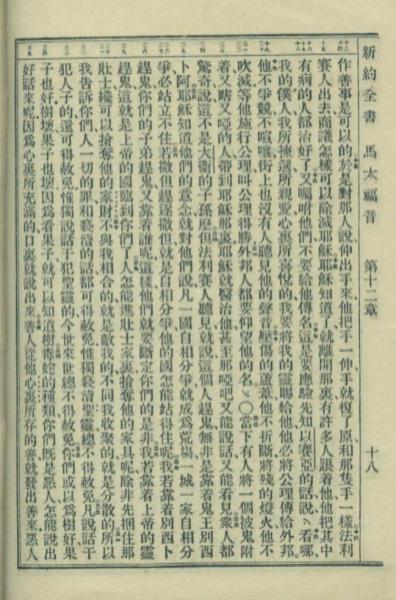 新約全書 馬太福音 第十二章 十八
作善事是可以的於是對那人說伸出手來他把手一伸手就復了原和那隻手一樣法利
賽人出去商議怎樣可以除滅耶穌耶穌知道了就離開那裏有許多人跟着他他把其中
有病的人都治好了又囑咐他們不要給他傳名這是要應驗先知以賽亞的話說看哪
我的僕人我所揀選所親愛心裏所喜悅的我要將我的靈賜給他他必將公理傳給外邦
他不爭競不喧嚷街上也沒有人聽見他的聲音壓傷的蘆葦他不折斷將殘的燈火他不
吹滅等他施行公理叫公理得勝外邦人都要仰望他的名〇當下有人將一個被鬼附
着又瞎又啞的人帶到耶穌那裏耶穌就醫治他甚至那啞吧又能說話又能看見衆人都
驚奇說這不是大衛的子孫麼但法利賽人聽見就說這個人趕鬼無非是靠着鬼王別西
卜阿耶穌知道他們的意念就對他們說凡一國自相分爭就成爲荒塲一城一家自相分
爭必站立不住若撒但趕逐撒但就是自相分爭他的國怎能站得住呢我若靠着別西卜
趕鬼你們的子弟趕鬼又靠着誰呢這樣他們就要斷定你們的是非我若靠着上帝的靈
趕鬼這就是上帝的國臨到你們了人怎能進壯士家裏搶奪他的家具呢除非先捆住那
壯士纔可以搶奪他的家財不與我相合的就是敵我的不同我收聚的就是分散的所以
我告訴你們人一切的罪和褻瀆的話都可得赦免惟獨褻瀆聖靈總不得赦免凡說話干
犯人子的還可得赦免惟獨說話干犯聖靈的今世來世總不得赦免你們或以爲樹好果
子也好樹壞果子也壞因爲看果子就可以知道樹毒蛇的種類你們既是惡人怎能說出
好話來呢因爲心裏所充滿的口裏就說出來善人從他心裏所存的善就發出善來惡人